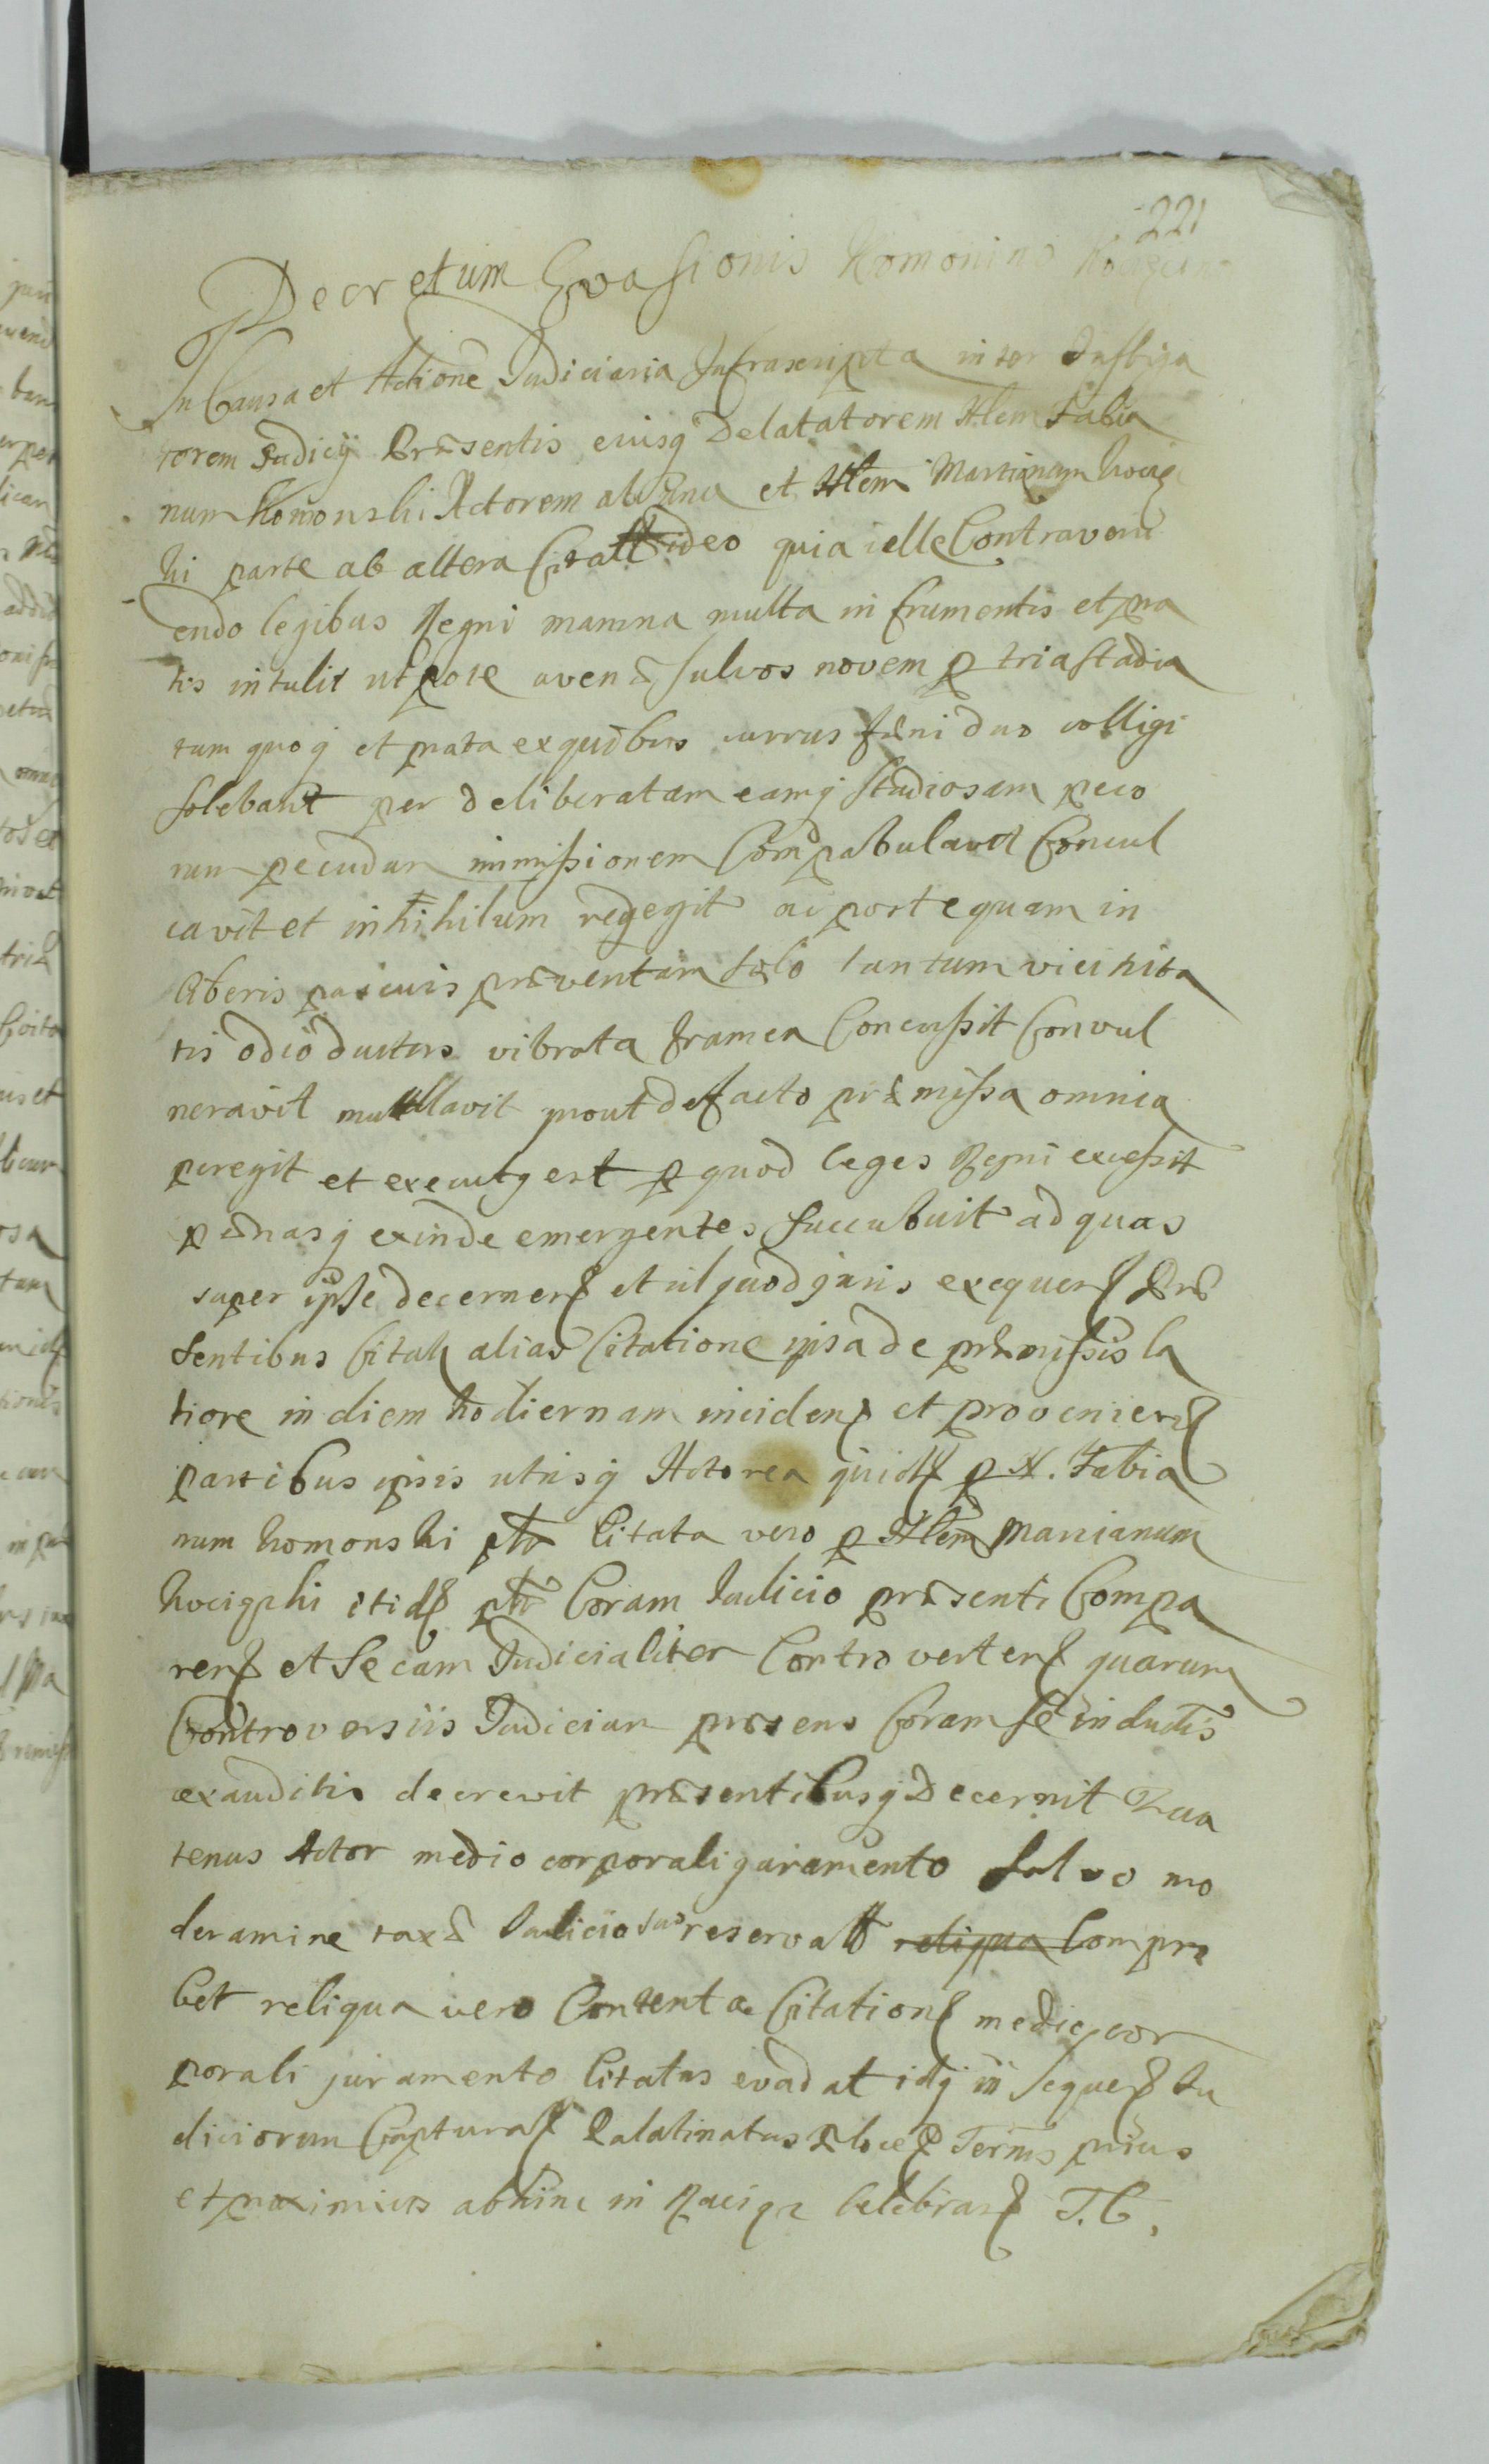 221
Decretum Evasionis Komonino
In Causa et Actione Judiciaria Infrascripta inter Instiga
torem Judicij Præsentis eiusq Delatatorem Nlem Fabia
num Komonski Actorem ab Una et Nlem Martianum Kocig
ki parte ab altera Citatt ideo quia ille Contraveni
endo legibus Regni mamna multa in frumentis et pra
tis intulit utpote avenæ sulcos novem p tria stadia
tum quoq et prata ex quibus currus fæni duo colligi
solebant per deliberatam eamq studiosam peco
rum pecudum immissionem Compabulavit Concul
cavit et in nihilum redegit ac post equam in
liberis pascuis præventam solo tantum vicinita
tis odio ductus vibrata framea Concussit Convul
neravit mutilavit prout de facto præmissa omnia
peregit et executq est p quod leges Regni excessit
pænasq exinde emergentes succubuit ad quas
super ipse decerner et id quod juris exequer Præ
sentibus Citatq alias Citatione ipsa de præmissis la
tiore in diem hodiernam inciden et provenien
partibus ipsis utrisq Actorea quid p N. Fabia
num Komonski ptr Citata vero p Nlem Marcianum
Kocigzki itid ptr Coram Judicio præsenti Compa
ren et Se cum Judicialiter Controverten quarum
Controversiis Judicium præsens Coram se inductis
exauditis decrevit præsentibusq Decernit Qua
tenus Actor medio corporali juramento salvo mo
deramine taxæ Judicio suo reservatt reliqua Compro
bet reliqua vero Contenta Citation medio cor
porali juramento Citatus evadat idq in seque Ju
diciorum Captural Palatinatus Ploce Termis prius
et proximius abhinc in Raciąz Celebran T. C.